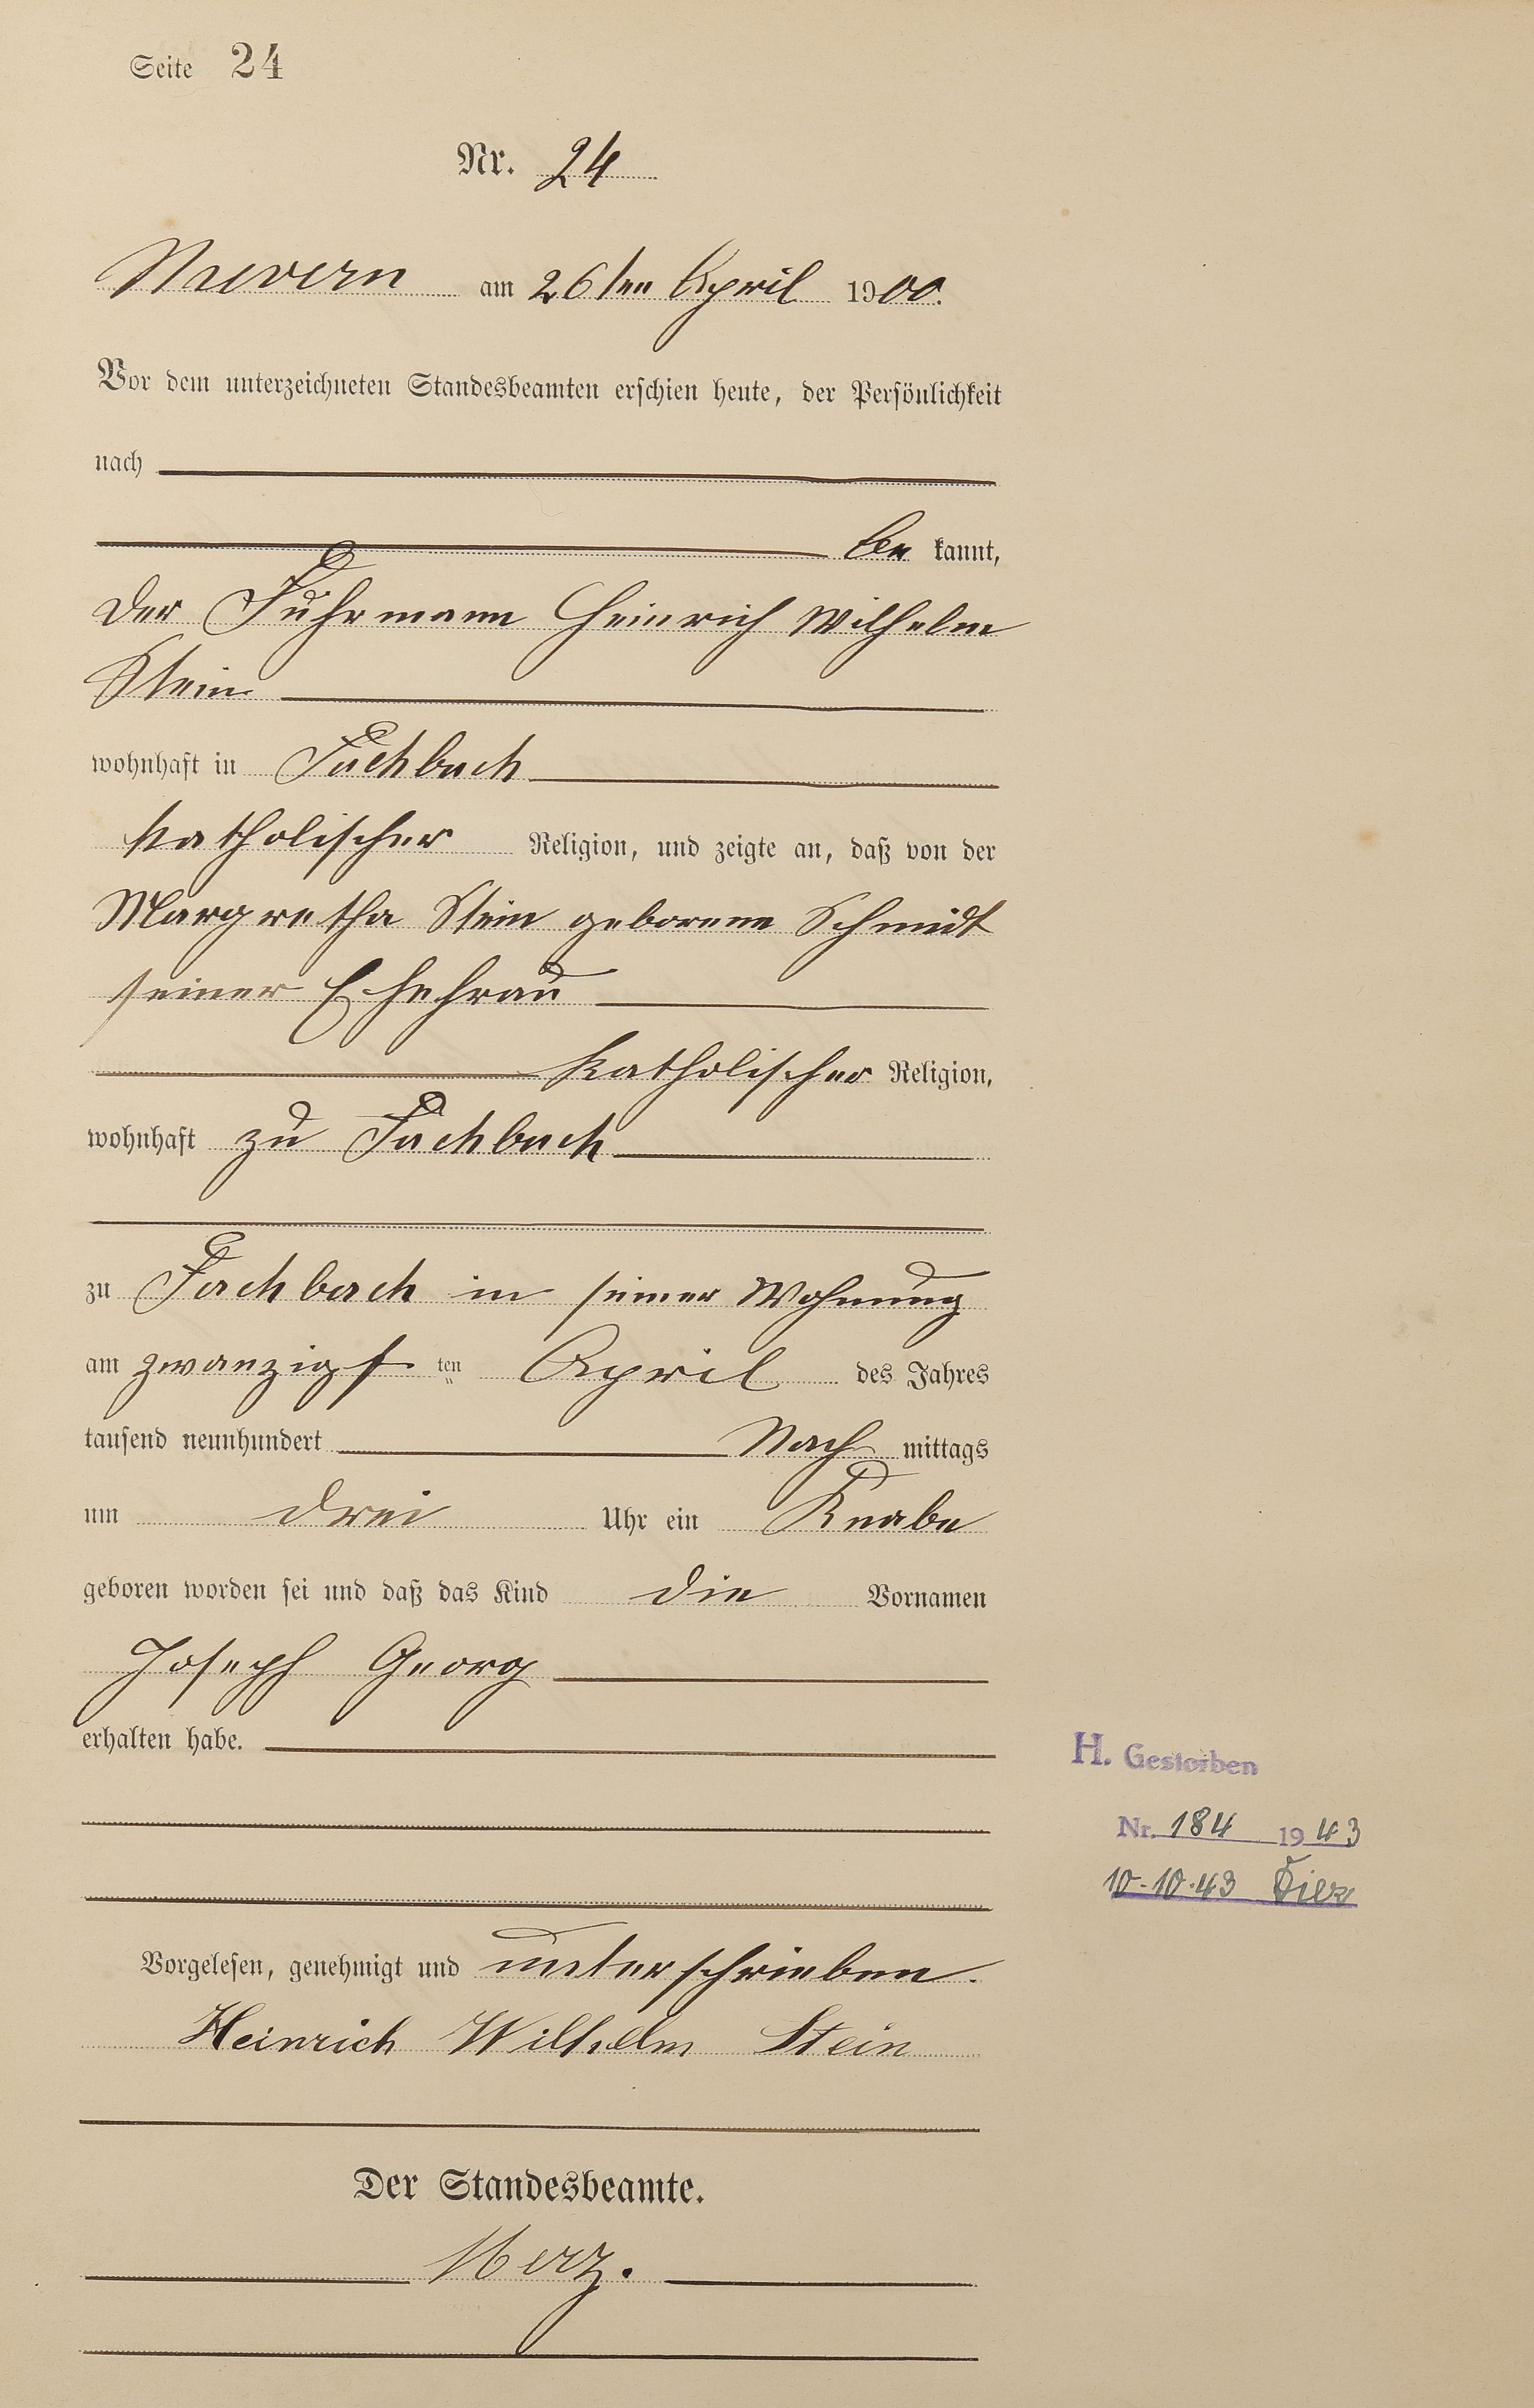 Seite 24
Nr. 24
Nievern am 26ten April 1900.
Vor dem unterzeichneten Standesbeamten erschien heute, der Persönlichkeit
nach
be kannt,
der Fuhrmann Heinrich Wilhelm
Stein
wohnhaft in Fachbach
katholischer Religion, und zeigte an, daß von der
Margretha Stein geborene Schmidt
seiner Ehefrau
katholischer Religion,
wohnhaft zu Fachbach
zu Fachbach in seiner Wohnung
am zwanzigsten April des Jahres
tausend neunhundert Nach mittags
um drei Uhr ein Knabe
geboren worden sei und daß das Kind die Vornamen
Joseph Georg
erhalten habe.
H. Gestorben
Nr. 184 1943
10.10.43 Diez
Vorgelesen, genehmigt und unterschrieben.
Heinrich Wilhelm Stein
Der Standesbeamte.
Merz.